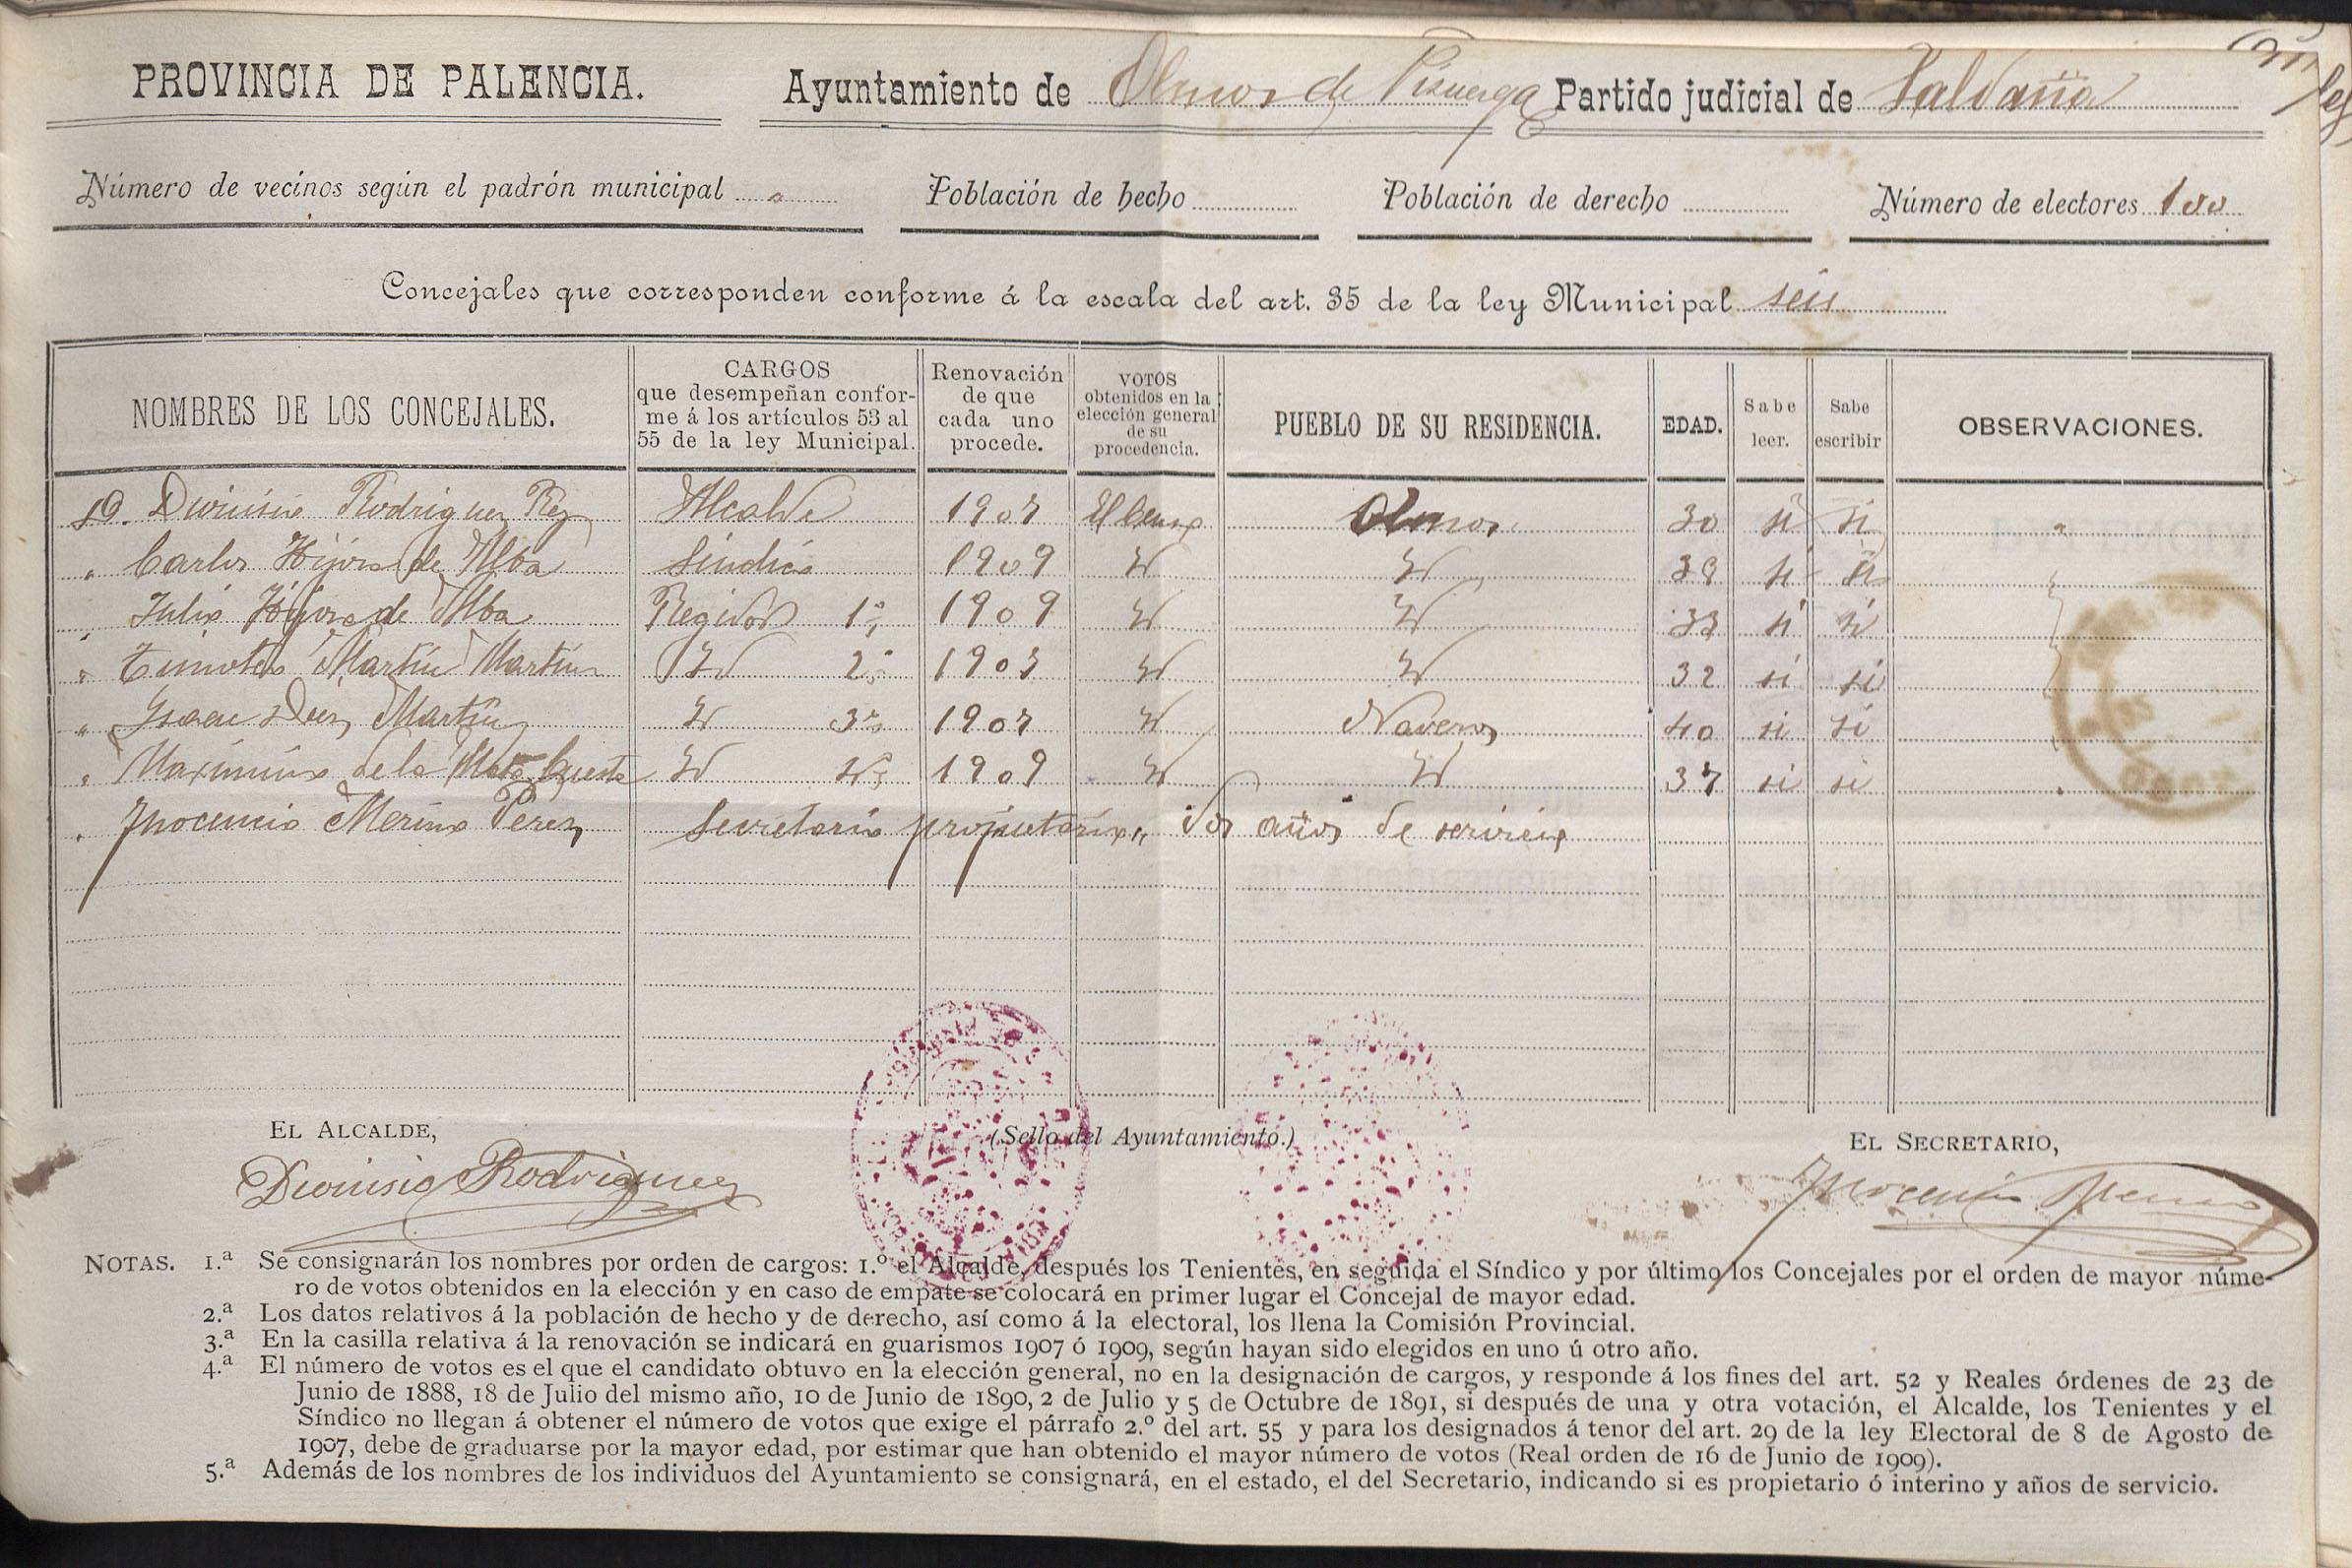 PROVINCIA DE PALENCIA. Ayuntamiento de Olmos de Pisuerga Partido judicial de Saldaña
Número de vecinos según el padrón municipal Población de hecho Población de derecho Número de electores 100
Concejales que corresponden conforme á la escala del art. 35 de la ley Municipal seis
NOMBRES DE LOS CONCEJALES. CARGOS que desempeñan confor- me á los artículos 53 al 55 de la ley Municipal. Renovación de que cada uno procede. VOTOS obtenidos en la elección general de su procedencia. PUEBLO DE SU RESIDENCIA. EDAD. Sabe leer. Sabe escribir OBSERVACIONES.
D. Dionisio Rodriguez Rey Alcalde 1907 Olmos 30 si si
" Carlos Hijosa de Alba Sindico 1909 Id Id 38 si si
" Julio Hijosa de Alba Regidor 1º 1909 Id Id 33 si si
" Timoteo Martín Martín Id 2º 1907 Id Id 32 si si
" Ysaac Diez Martín Id 3º 1907 Id Naveros 40 si si
" Maximino de la Mata Cuesta Id 4º 1909 Id Id 37 si si
" Ynocencio Merino Perez Secretario propietario " dos años de servicio
EL ALCALDE, (Sello del Ayuntamiento.) EL SECRETARIO,
Dionisio Rodriguez Ynocencio Merino
NOTAS. 1.ª Se consignarán los nombres por orden de cargos: 1.º el Alcalde, después los Tenientes, en seguida el Síndico y por último los Concejales por el orden de mayor núme-
ro de votos obtenidos en la elección y en caso de empate se colocará en primer lugar el Concejal de mayor edad.
2.ª Los datos relativos á la población de hecho y de derecho, así como á la electoral, los llena la Comisión Provincial.
3.ª En la casilla relativa á la renovación se indicará en guarismos 1907 ó 1909, según hayan sido elegidos en uno ú otro año.
4.ª El número de votos es el que el candidato obtuvo en la elección general, no en la designación de cargos, y responde á los fines del art. 52 y Reales órdenes de 23 de
Junio de 1888, 18 de Julio del mismo año, 10 de Junio de 1890, 2 de Julio y 5 de Octubre de 1891, si después de una y otra votación, el Alcalde, los Tenientes y el
Síndico no llegan á obtener el número de votos que exige el párrafo 2.º del art. 55 y para los designados á tenor del art. 29 de la ley Electoral de 8 de Agosto de
1907, debe de graduarse por la mayor edad, por estimar que han obtenido el mayor número de votos (Real orden de 16 de Junio de 1909).
5.ª Además de los nombres de los individuos del Ayuntamiento se consignará, en el estado, el del Secretario, indicando si es propietario ó interino y años de servicio.